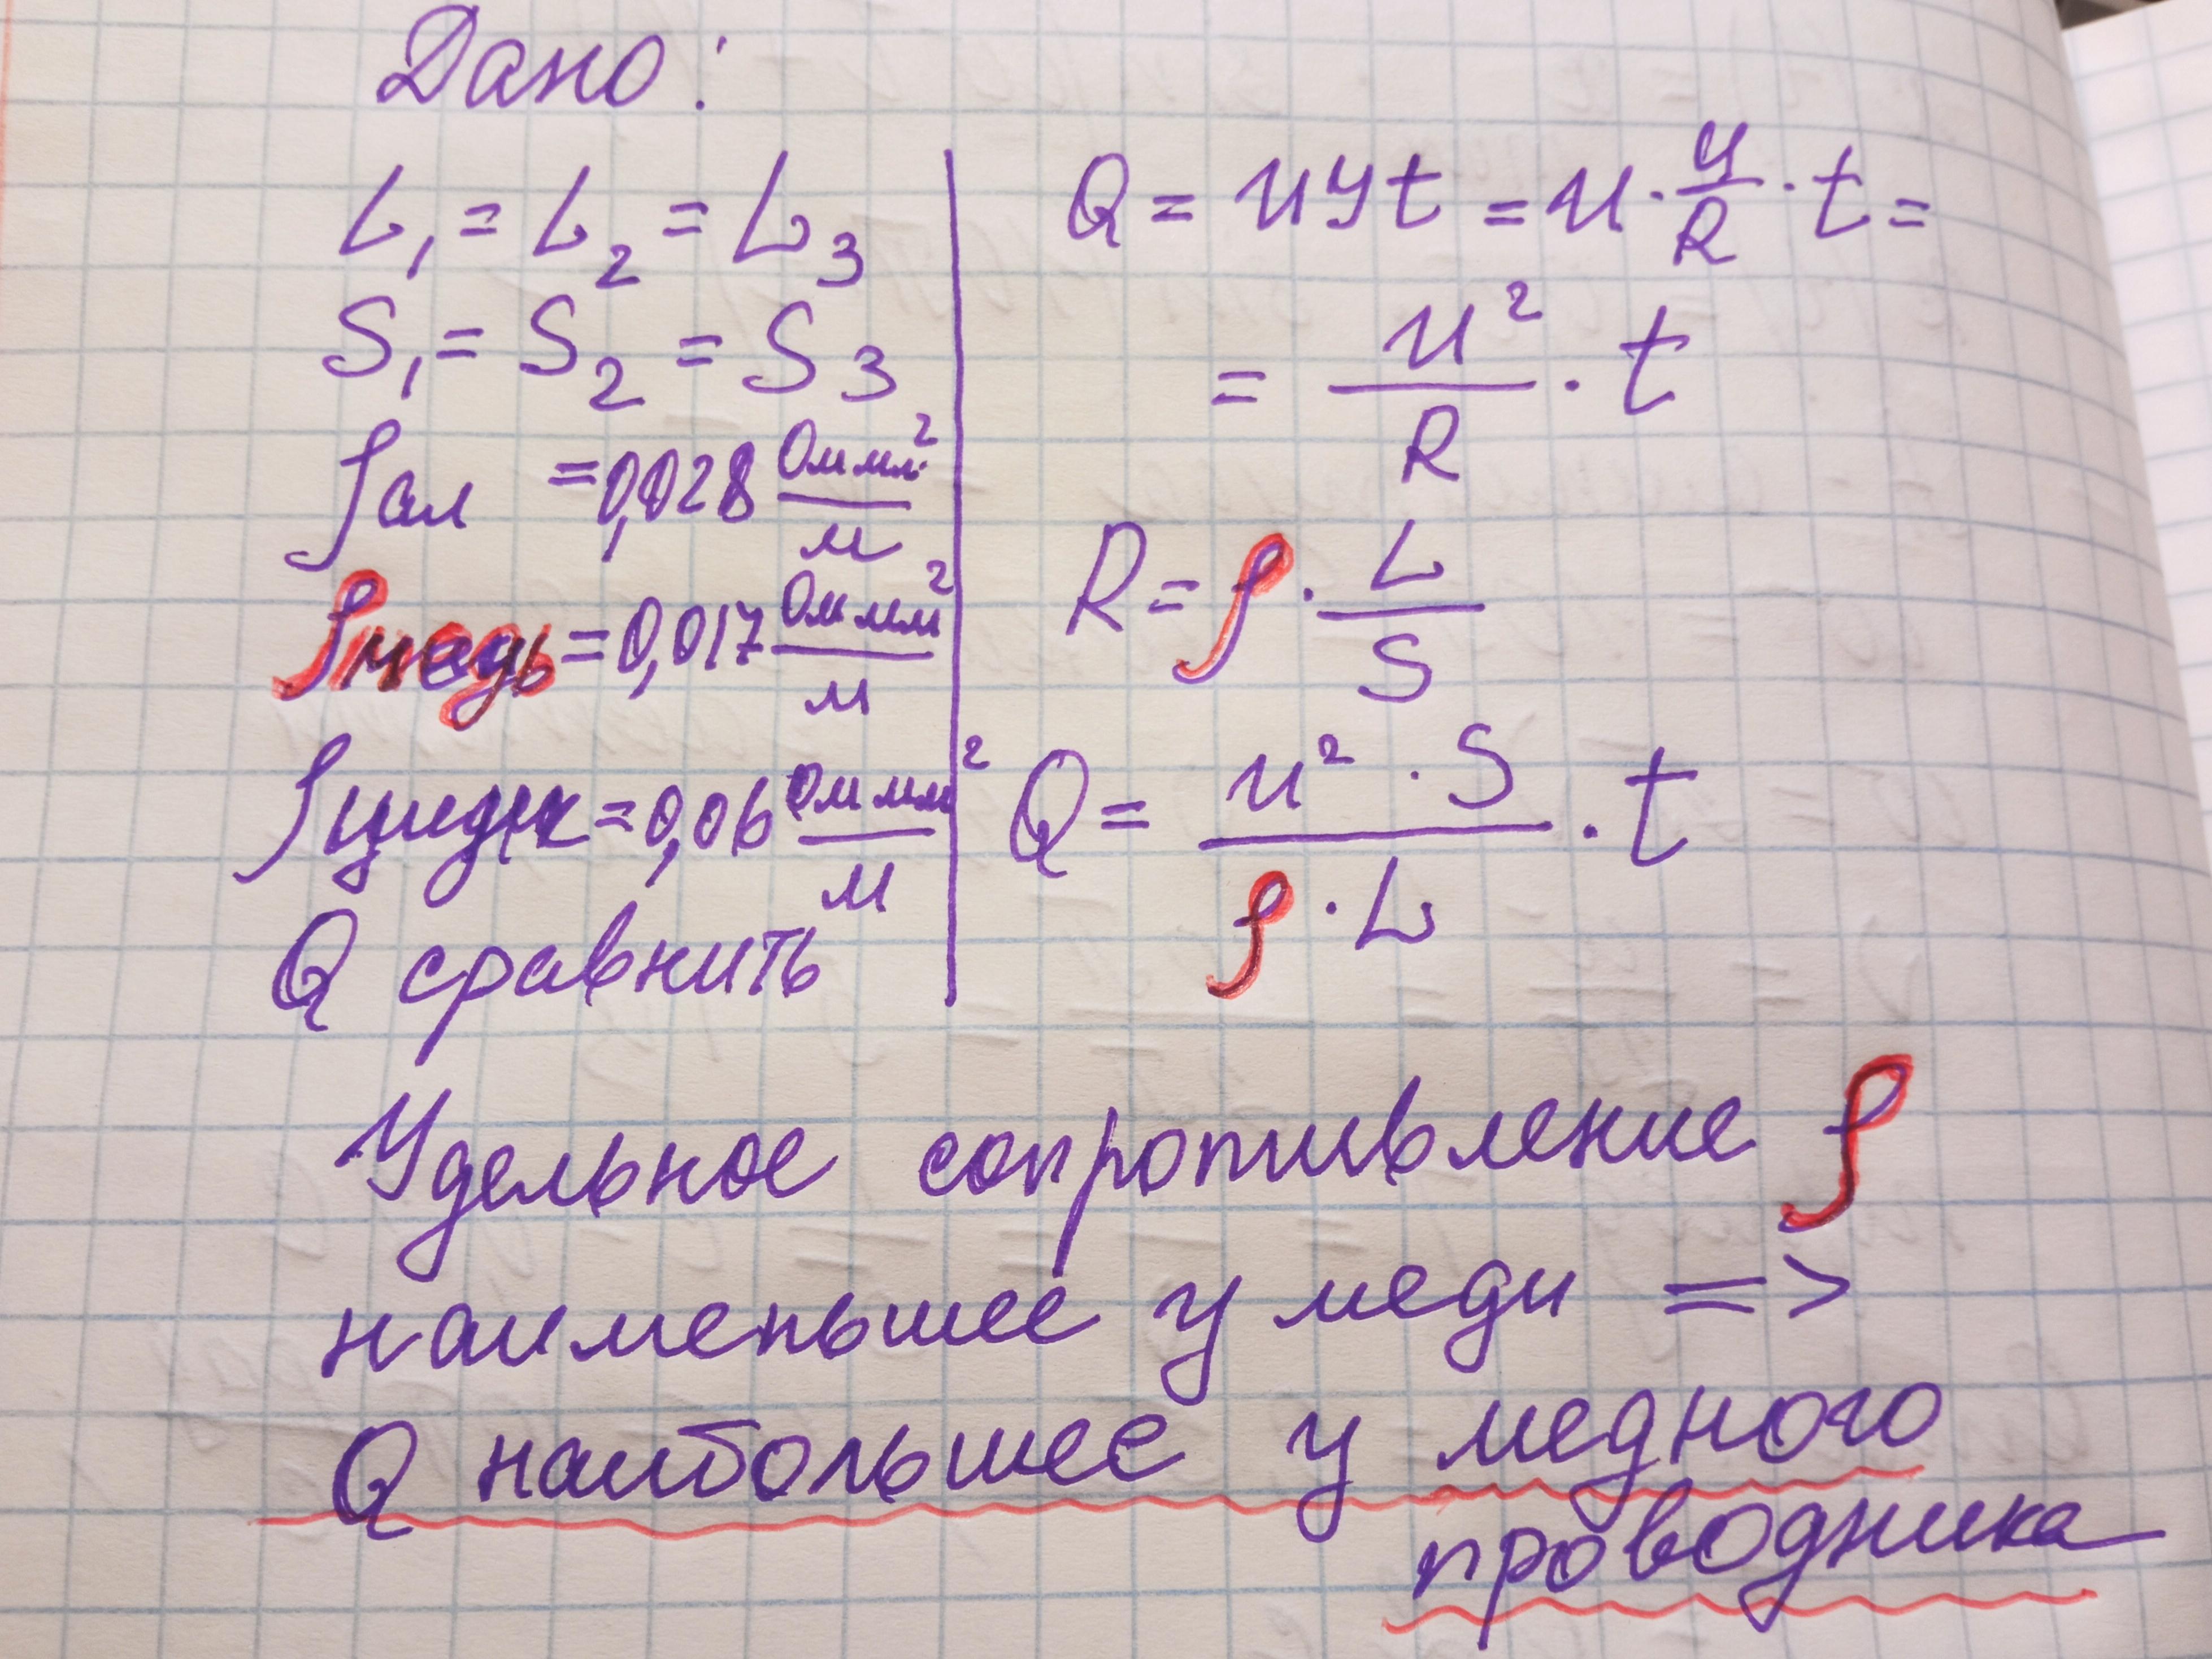 Дано:
L₁ = L₂ = L₃
S₁ = S₂ = S₃
ρал = 0,028 Ом мм²/м
ρмедь = 0,017 Ом мм²/м
ρцидк = 0,06 Ом мм²/м
Q сравнить
Q = UIt = U · U/R · t =
= U²/R · t
R = ρ · L/S
Q = U² · S/ρ · L · t
Удельное сопротивление ρ
наименьшее у меди =>
Q наибольшее у медного
проводника